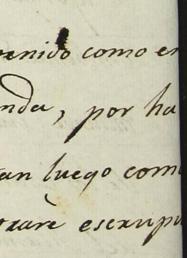 venido como en
nda, por ha
an luego com
trarè escrupu